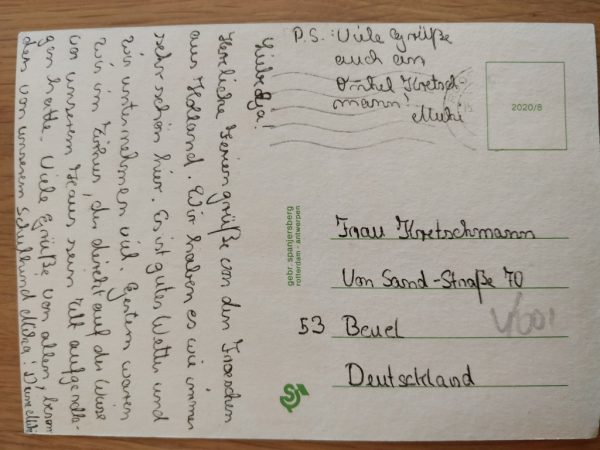 Liebe
Herzliche Feriengrüße von den
aus Holland. Wir haben es wie immer
sehr schön hier. Es ist gutes Wetter und
wir unternehmen viel. Gestern waren
wir im Zirkus, der direkt auf der Wiese
vor unserem Haus sein Zelt aufgeschla-
gen hatte. Viele Grüße von allen, beson-
ders von unserem Schulkind Deine
P.S.: Viele Grüße
auch an
Onkel Kretsch-
mann!
Muki
2020/8
gebr. spanjersberg
rotterdam - antwerpen
Frau Kretschmann
Von Sand-Straße 70
53 Beuel
Deutschland